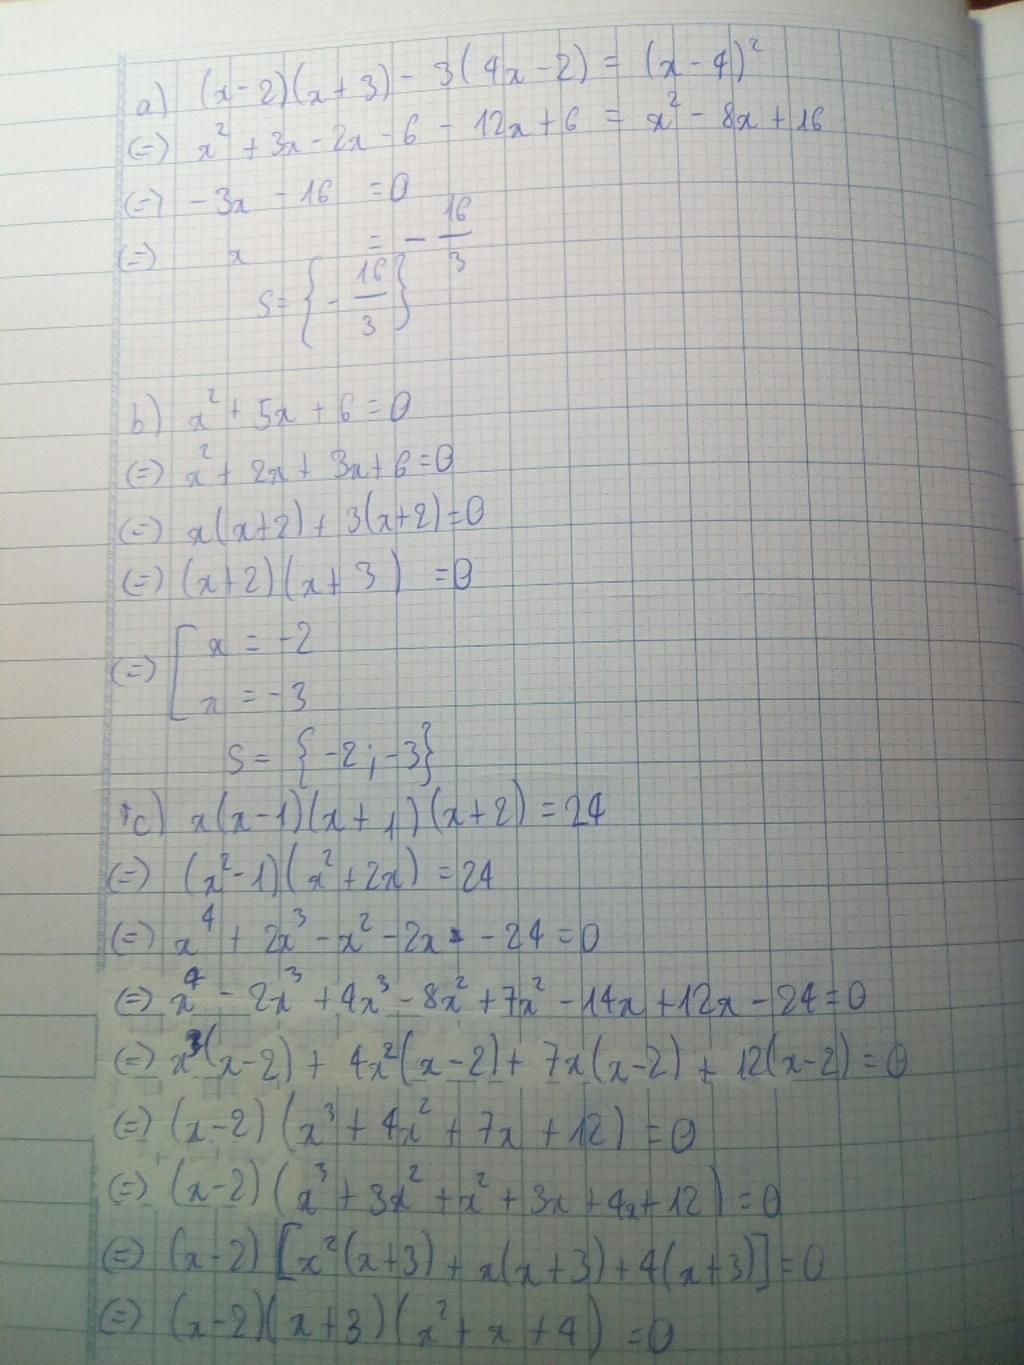 a) (x-2)(x+3) - 3(4x-2) = (x-4)²
(=) x² + 3x - 2x - 6 - 12x + 6 = x² - 8x + 16
(=) -3x - 16 = 0
(=) x = - 16/3
S = { - 16/3 }
b) x² + 5x + 6 = 0
(=) x² + 2x + 3x + 6 = 0
(=) x(x+2) + 3(x+2) = 0
(=) (x+2)(x+3) = 0
(=) [ x = -2
x = -3
S = {-2; -3}
c) x(x-1)(x+1)(x+2) = 24
(=) (x²-1)(x²+2x) = 24
(=) x⁴ + 2x³ - x² - 2x - 24 = 0
(=) x⁴ - 2x³ + 4x³ - 8x² + 7x² - 14x + 12x - 24 = 0
(=) x³(x-2) + 4x²(x-2) + 7x(x-2) + 12(x-2) = 0
(=) (x-2)(x³ + 4x² + 7x + 12) = 0
(=) (x-2)(x³ + 3x² + x² + 3x + 4x + 12) = 0
(=) (x-2)[x²(x+3) + x(x+3) + 4(x+3)] = 0
(=) (x-2)(x+3)(x² + x + 4) = 0